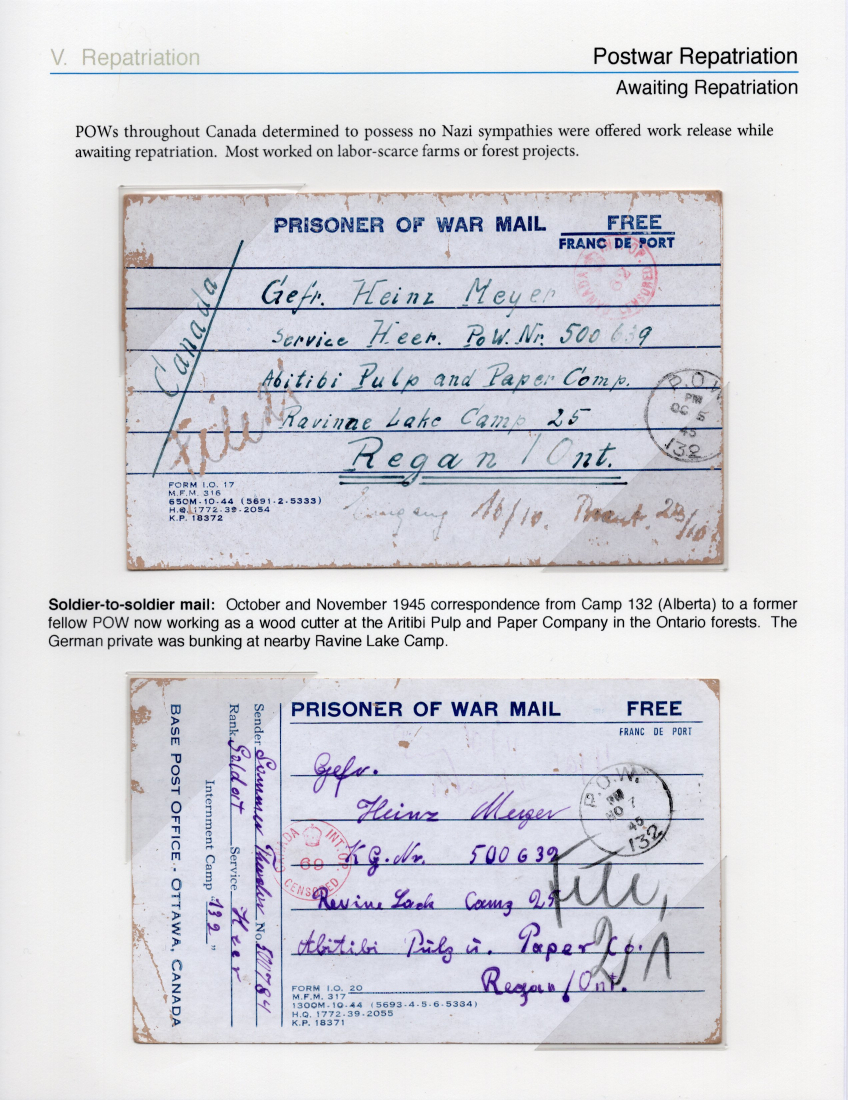 V. Repatriation
Postwar Repatriation
Awaiting Repatriation
POWs throughout Canada determined to possess no Nazi sympathies were offered work release while
awaiting repatriation. Most worked on labor-scarce farms or forest projects.
PRISONER OF WAR MAIL FREE
FRANC DE PORT
CENSORED
Canada
Gefr. Heinz Meyer
Service Heer. PoW. Nr. 500 639
Abitibi Pulp and Paper Comp.
Ravinne Lake Camp 25
Regan / Ont.
P.O.W.
PM
OC 5
45
132
FORM I.O. 17
M.F.M. 316
650M-10-44 (5691-2-5333)
H.Q. 1772-39-2054
K.P. 18372
Eingang 16/10. 28/10
Soldier-to-soldier mail: October and November 1945 correspondence from Camp 132 (Alberta) to a former
fellow POW now working as a wood cutter at the Aritibi Pulp and Paper Company in the Ontario forests. The
German private was bunking at nearby Ravine Lake Camp.
BASE POST OFFICE - OTTAWA, CANADA
Internment Camp "132"
Rank Soldat Service Heer
Sender Sommer No.
PRISONER OF WAR MAIL FREE
FRANC DE PORT
Gefr.
Heinz Meyer
K.G.Nr. 500639
Revine Lack Camp 25
Abitibi Pulp u. Paper Co.
Regan/Ont.
P.O.W.
PM
NO 7
45
132
INT. OP.
69
CENSORED
FORM I.O. 20
M.F.M. 317
1300M-10-44 (5693-4-5-6-5334)
H.Q. 1772-39-2055
K.P. 18371